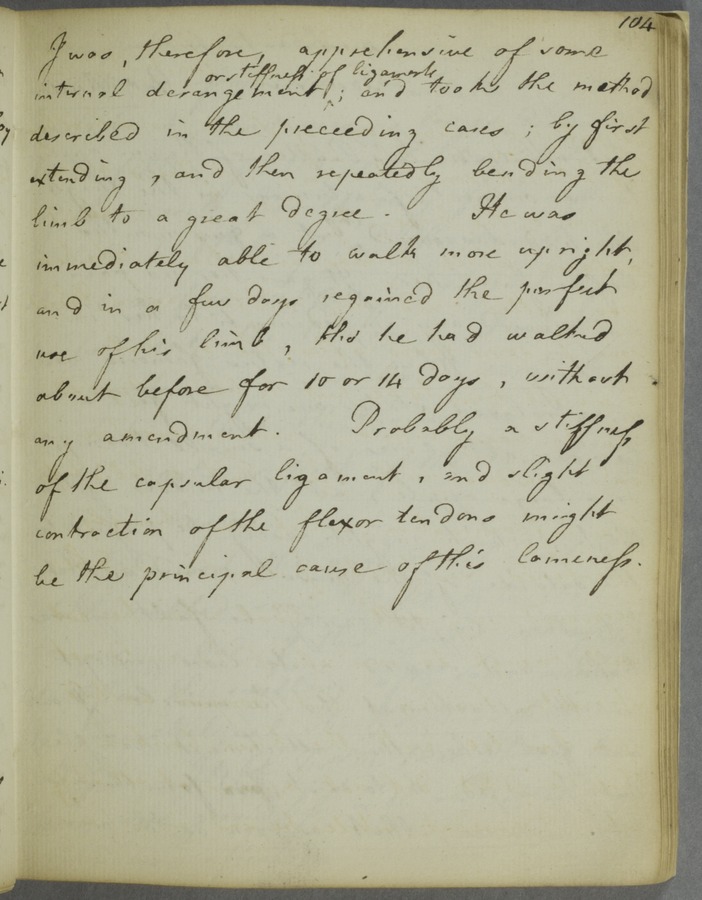 104
I was, therefore, apprehensive of some
or stiffness of ligaments
internal derangement; and took the method
described in the preceeding cases; by first
extending, and then repeatedly bending the
limb to a great degree. He was
immediately able to walk more upright,
and in a few days regained the perfect
use of his limb, tho' he had walked
about before for 10 or 14 days, without
any amendment. Probably a stiffness
of the capsular ligament, and slight
contraction of the flexor tendons might
be the principal cause of this lameness.